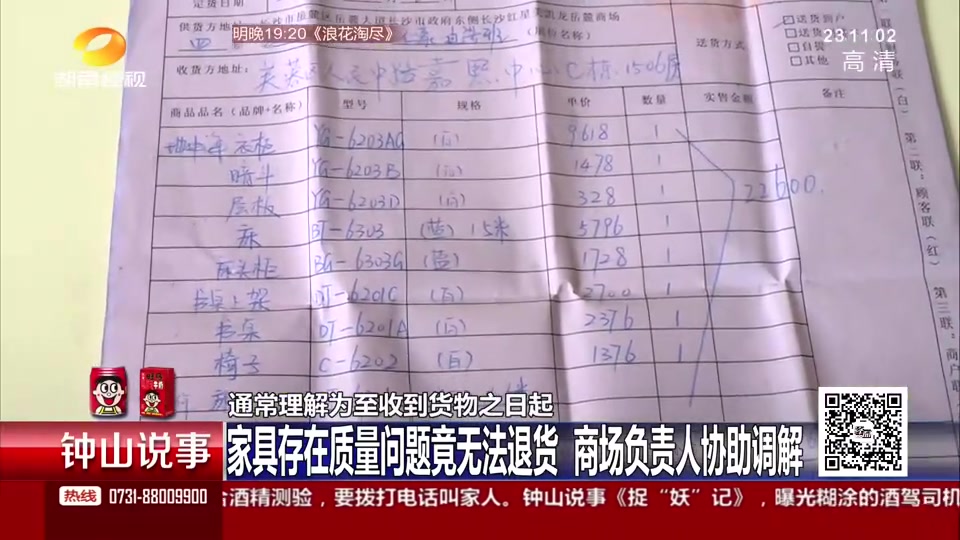 定货日期
供货方地址：长沙市岳麓区岳麓大道长沙市政府东侧长沙红星美凯龙岳麓商场
明晚19:20《浪花淘尽》
送货方式
送货到户
自提
其他
23 11 02
高清
湖南经视
收货方地址：芙蓉区人民中路嘉熙中心C栋1506房
商品品名（品牌+名称） 型号 规格 单价 数量 实售金额 备注
地中海衣柜 YG-6203AG （白） 9618 1
YG-6203B （白） 1478 1
层板 YG-6203D （白） 328 1
22600.
床 BT-6303 （蓝）1.5米 5796 1
床头柜 BG-6303G （蓝） 1728 1
书桌上架 DT-6201C （白） 2700 1
书桌 DT-6201A （白） 2376 1
椅子 C-6202 （白） 1376 1
第二联：顾客联（红）
第三联：商户联
通常理解为至收到货物之日起
钟山说事
家具存在质量问题竟无法退货 商场负责人协助调解
热线 0731-88009900
酒精测验，要拨打电话叫家人。钟山说事《捉“妖”记》，曝光糊涂的酒驾司机